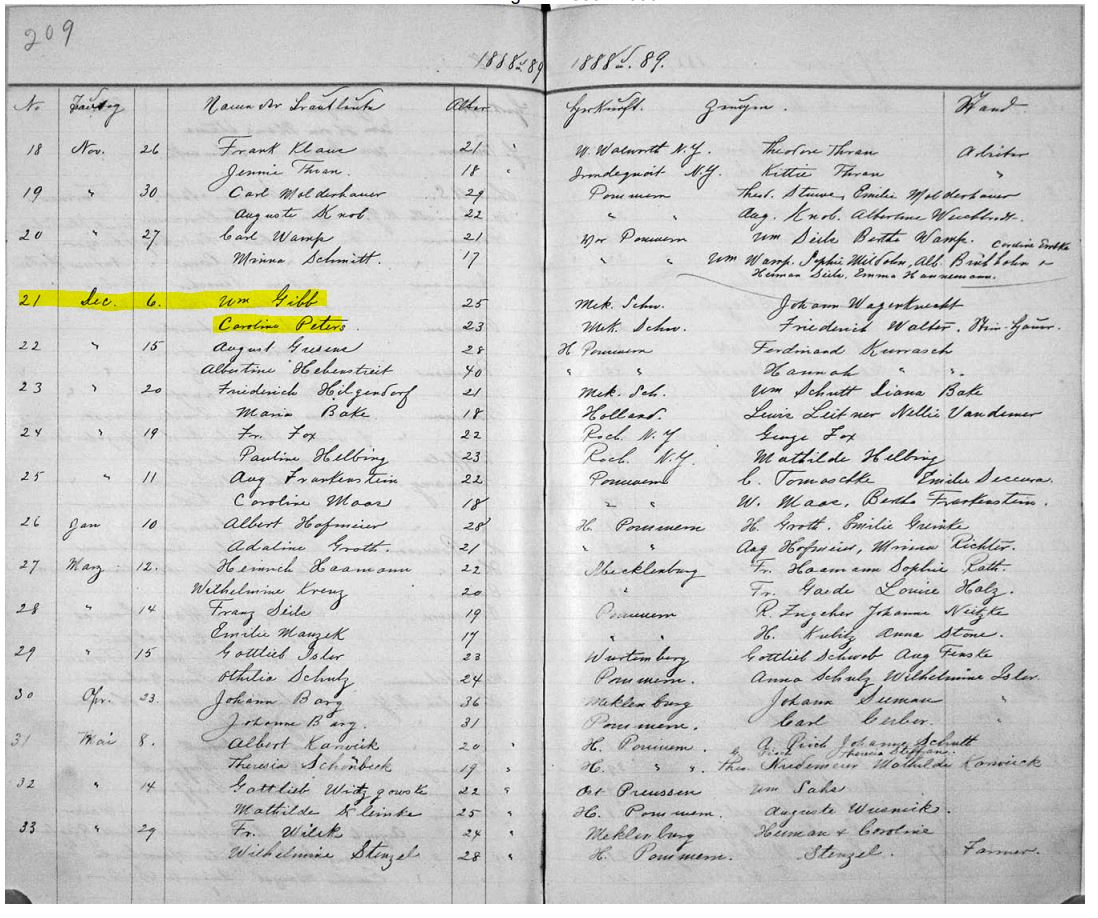 209
1888 u 89 1888 u. 89.
No Trautag Namen der Brautleute Alter Herkunft Zeugen Stand
18 Nov. 26 Frank Klaus 21 W. Walworth N.Y. Theodore Thran Arbeiter
Jennie Thran. 18 " Irondequoit N.Y. Kittie Thran "
19 " 30 Carl Molderhauer 29 Pommern Theod. Stuwe, Emilie Molderhauer
Auguste Knob. 22 " " Aug. Knob. Albertine
20 " 27 Carl Wamp 21 Vor Pommern Wm Seile Bertha Wamp. Caroline
Minna Schmitt. 17 " " Wm Wamp. Sophie Alb.
Herman Seile. Emma Hannemann.
21 Dec. 6. Wm Gibb 25 Mek. Schw. Johann Wagerknecht
Caroline Peters. 23 Mek. Schw. Friederich Walter.
22 " 15 August Gresens 28 H Pommern Ferdinand Kurrasch
Albertine Hebenstreit 40 " " Hannah " ".
23 " 20 Friederich Hilgendorf 21 Mek. Sch. Wm Schutt Diana Bake
Maria Bake. 18 Holland. Lewis Leitner Nellie Vandemer
24 " 19 Fr. Fox 22 Roch. N.Y George Fox
Pauline Helbing 23 Roch. N.Y. Mathilde Helbing
25 " 11 Aug Frankenstein 22 Pommern C. Tomaschke Emilie
Caroline Maas 18 " " W. Maas, Bertha Frankenstein.
26 Jan 10 Albert Hofmeier 28 H. Pommern H. Groth. Emilie Greinke
Adaline Groth. 21 " " Aug Hofmeier, Minna Richter.
27 Marz 12. Heinrich Haamann 22 Mecklenburg Fr. Haamann Sophie Rath.
Wilhelmine Krenz 20 " Fr. Gaede Louise Holz.
28 " 14 Franz Seile 19 Pommern R. Zugeher Johanne Neitzke
Emilie Manzek 17 " " H. Kubitz Anna Stone.
29 " 15 Gottlieb Isler 23 Wurtemberg Gottlieb Schwob Aug Fenske
Othilia Schulz 24 Pommern. Anna Schulz Wilhelmine Isler.
30 Apr. 23. Johann Barg 36 Meklenburg Johann Seeman "
Johanne Barg. 31 Pommern. Carl Gerber.
31 Mai 8. Albert Karwik 20 " H. Pommern. A. Pirch Johanna Schutt
C. Theresia Steffan.
Theresia Schönbeck 19 " H. " " Theo. Mathilde Karwick
32 " 14 Gottlieb Witzgowske 22 " Ost Preussen Wm Sahs
Mathilde Kleinke 25 " H. Pommern. Auguste Wusnick.
33 " 29 Fr. Wilck 24 " Meklenburg Herman + Caroline
Wilhelmine Stenzel 28 " H. Pommern. Stenzel. Farmer.